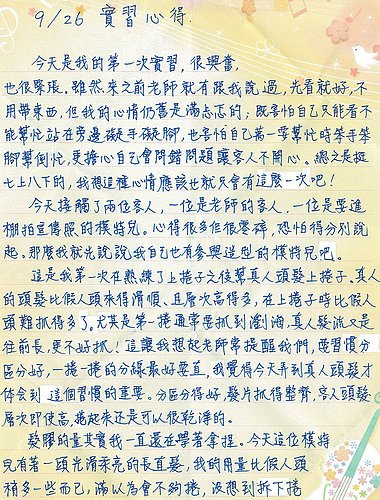 9/26 實習心得.
今天是我的第一次實習, 很興奮,
也很緊張。雖然來之前老師就有跟我說過, 先看就好, 不
用帶東西, 但我的心情仍舊是滿忐忑的; 既害怕自己只能看不
能幫忙站在旁邊礙手礙腳, 也害怕自己萬一要幫忙時笨手笨
腳幫倒忙, 更擔心自己會問錯問題讓客人不開心。總之是挺
七上八下的, 我想這種心情應該也就只會有這麼一次吧!
今天接觸了兩位客人, 一位是老師的客人, 一位是要進
棚拍宣傳照的模特兒。心得很多但很零碎, 恐怕得分別說
起。那麼我就先說說我自己也有參與造型的模特兒吧。
這是我第一次在熟練了上捲子之後幫真人頭髮上捲子。真人
的頭髮比假人頭來得滑順、且層次高得多, 在上捲子時比假人
頭難抓得多了。尤其是第一捲通常要抓到瀏海, 真人髮流又是
往前長, 更不好抓! 這讓我想起老師常提醒我們, 要習慣分
區分好, 一捲一捲的分線最好要直, 我覺得今天弄到真人頭髮才
体会到 這個習慣的重要。分區分得好, 髮片抓得整齊, 客人頭髮
層次即使高, 捲起來还是可以很乾淨的。
髮膠的量其實我一直還在學著拿捏。今天這位模特
兒有著一頭光滑柔亮的長直髮, 我的用量比假人頭
稍多一些而已, 滿以為會不夠捲, 沒想到拆下捲